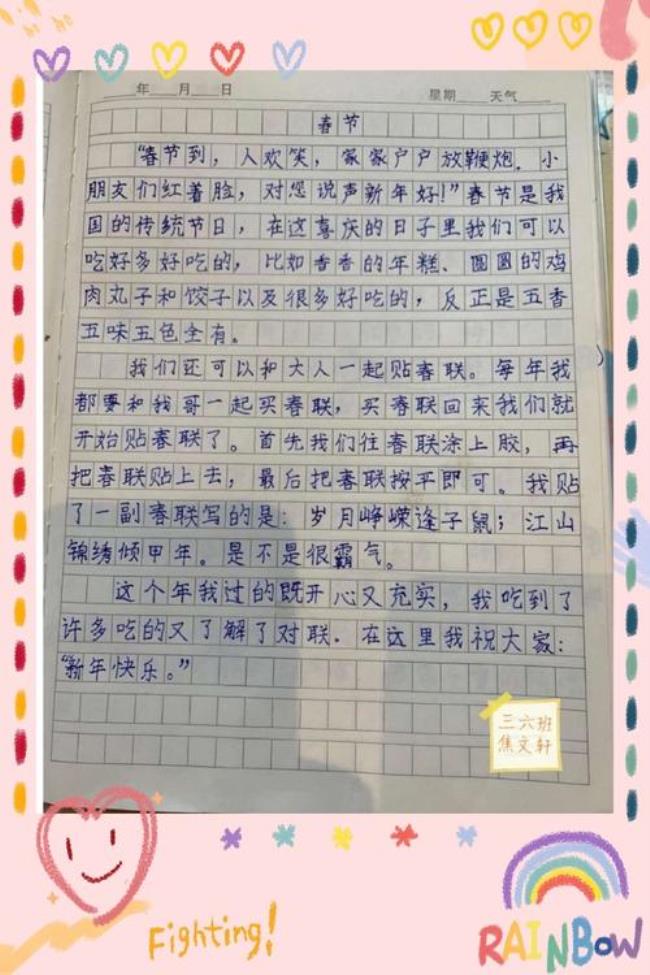 年 月 日 星期 天气
春节
“春节到，人欢笑，家家户户放鞭炮．小
朋友们红着脸，对您说声新年好!”春节是我
国的传统节日，在这喜庆的日子里我们可以
吃好多好吃的，比如香香的年糕、圆圆的鸡
肉丸子和饺子以及很多好吃的，反正是五香
五味五色全有。
我们还可以和大人一起贴春联。每年我
都要和我哥一起买春联，买春联回来我们就
开始贴春联了。首先我们往春联涂上胶，再
把春联贴上去，最后把春联按平即可。我贴
了一副春联写的是：岁月峥嵘逢子鼠；江山
锦绣倾甲年。是不是很霸气。
这个年我过的既开心又充实，我吃到了
许多吃的又了解了对联．在这里我祝大家：
“新年快乐。”
三六班
焦文轩
Fighting!
RAINBOW